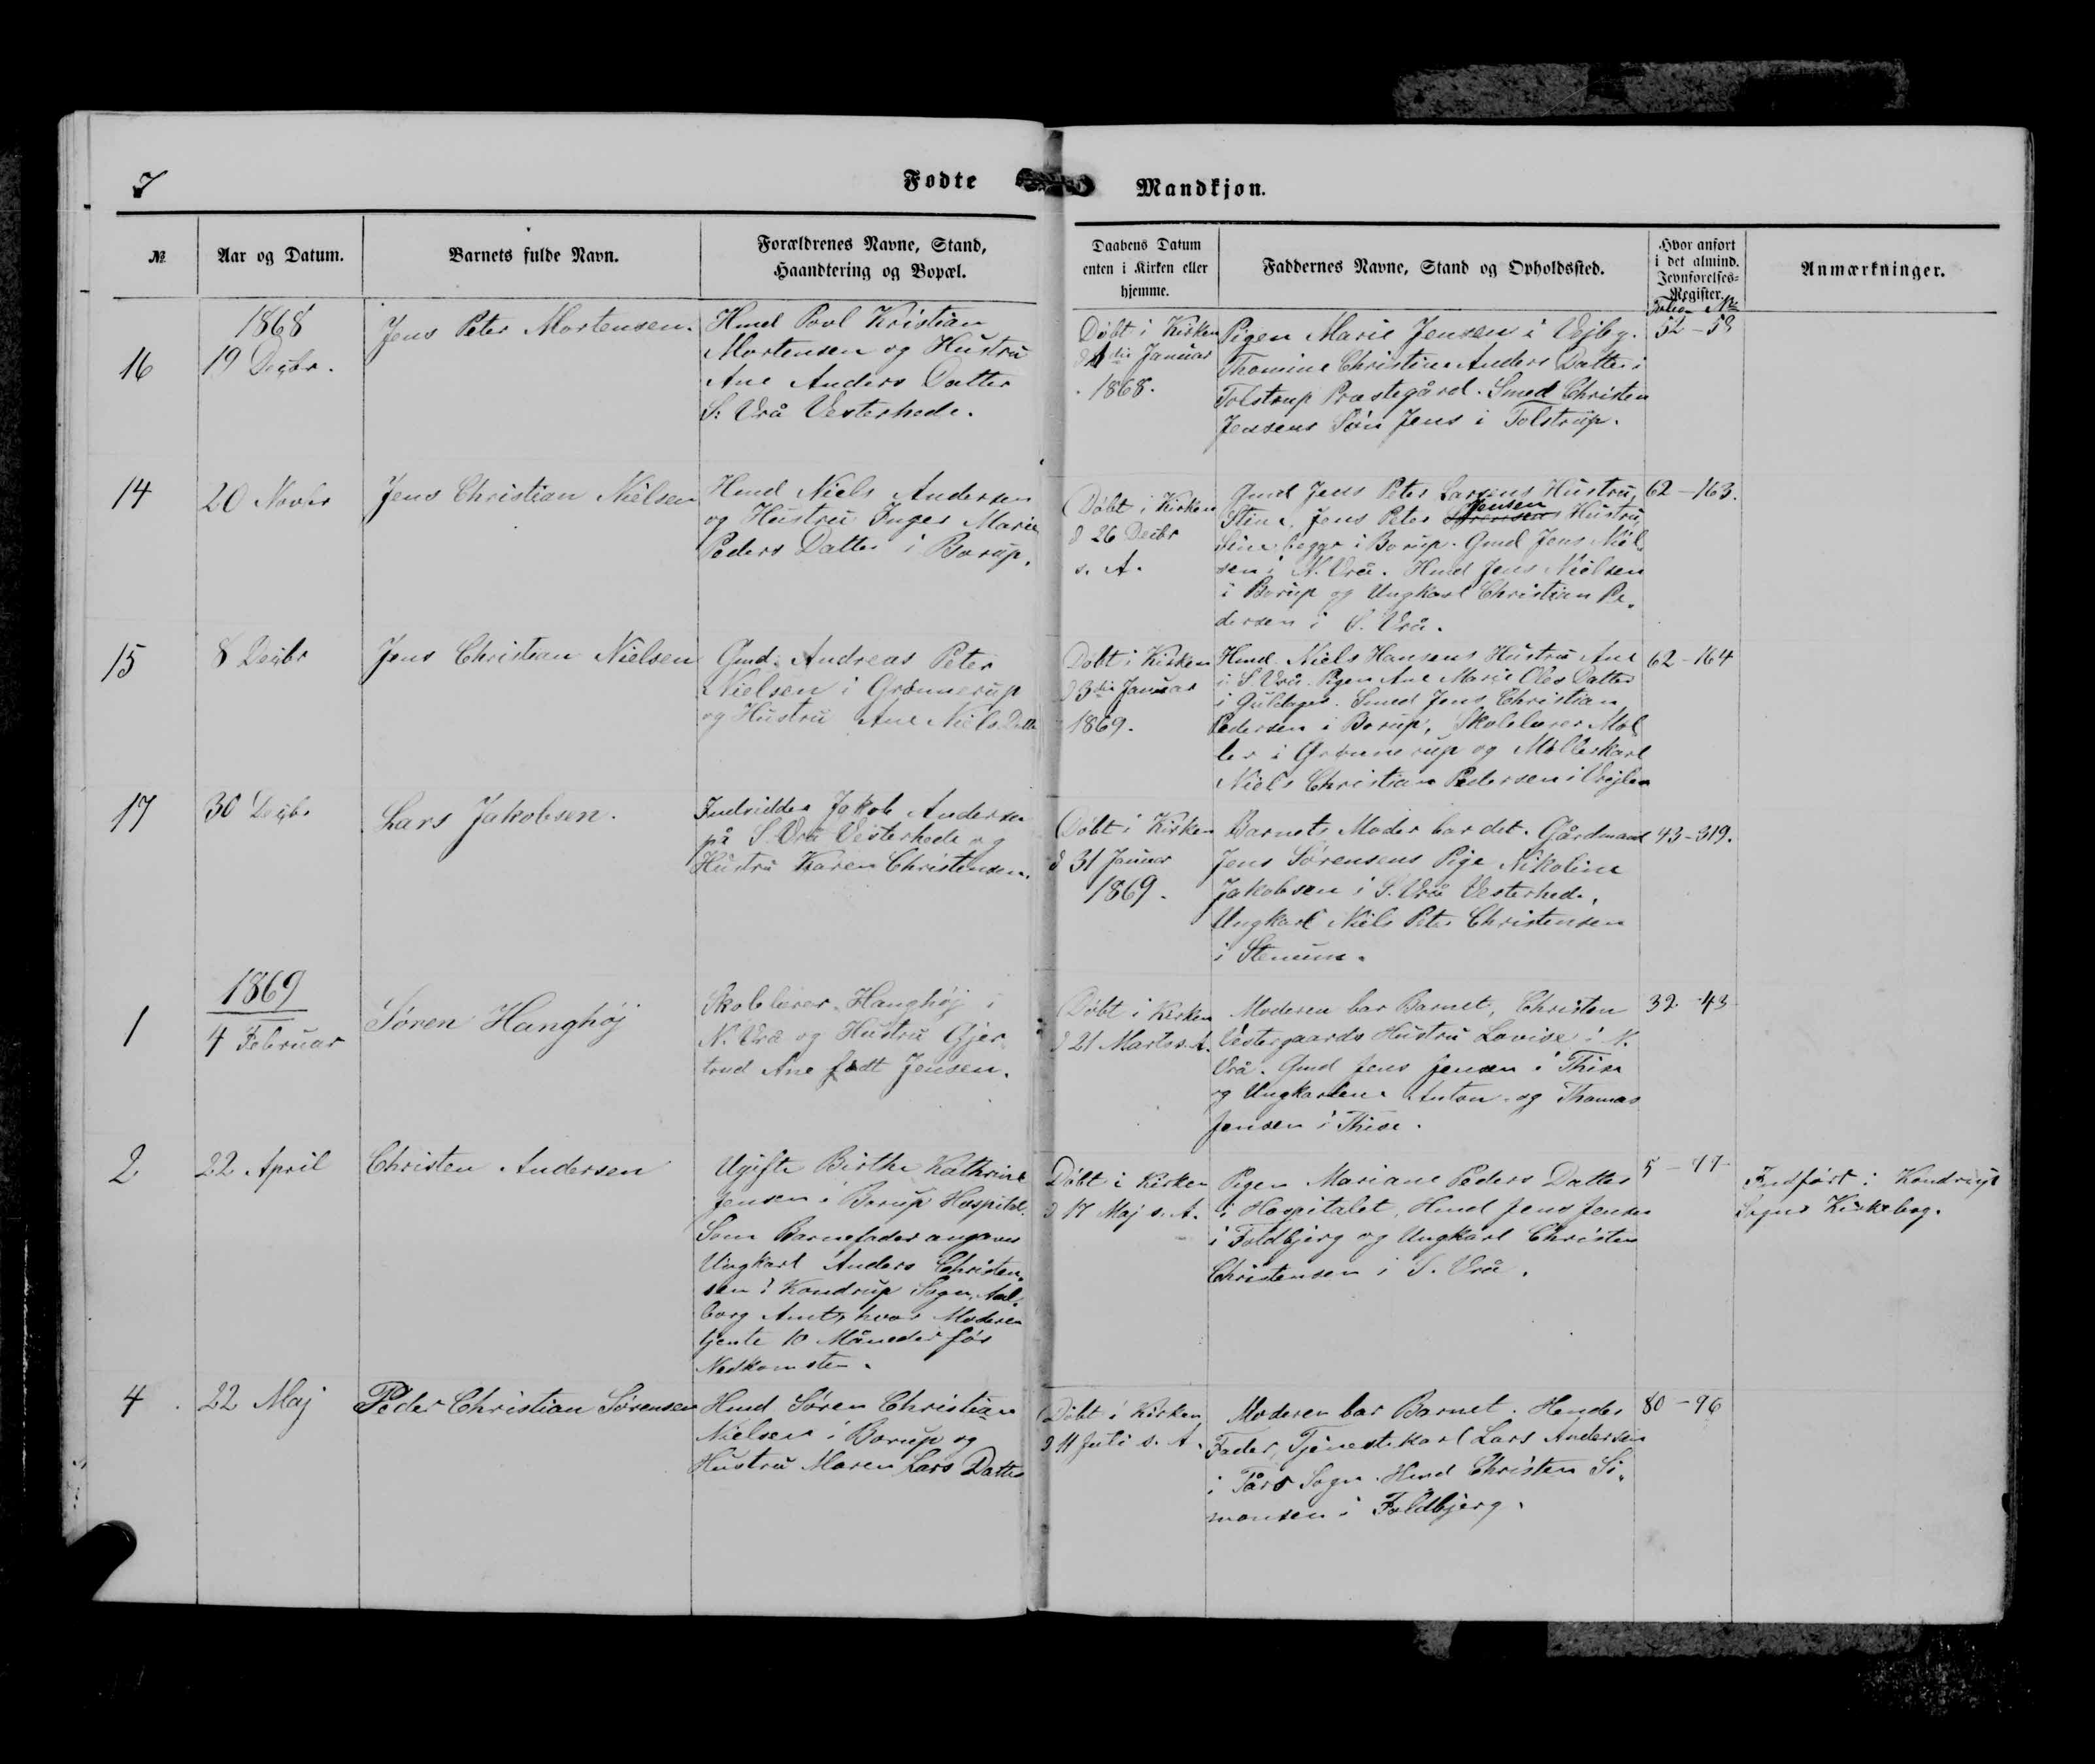 7
Fødte
Mandkjøn.
№
Aar og Datum.
Barnets fulde Navn.
Forældrenes Navne, Stand,
Haandtering og Bopæl.
Daabens Datum
enten i Kirken eller
hjemme.
Faddernes Navne, Stand og Opholdssted.
Hvor anført
i det almind.
Jevnførelses-
Register.
Folio № 
Anmærkninger.
16
1868
19 Decbr.
Jens Peter Mortensen.
Hmd Povl Kristian
Mortensen og Hustru
Ane Anders Datter
S: Vrå Vesterhede.
Døbt i Kirken
Januar
1868.
Pigen Marie Jensen i Vejby.
Thomine Christine Anders Datter i
Tolstrup Præstegård. Smed Christen
Jensens Søn Jens i Tolstrup.
52 - 58
14
20 Novbr
Jens Christian Nielsen
Hmd Niels Andersen
og Hustru Inger Marie
Peders Datter i Borup.
Døbt i Kirken
d 26 Decbr
s. A.
Gmd Jens Peter Larsens Hustru,
Stine, Jens Peter Jensen Hustru
Sine begge i Borup. Gmd Jens Niel-
sen i N. Vrå. Hmd Jens Nielsen
i Borup og Ungkarl Christian Pe-
dersen i S. Vrå.
62 - 163.
15
8 Decbr
Jens Christian Nielsen
Gmd. Andreas Peter
Nielsen i Grønnerup
og Hustru Ane Niels Datt
Døbt i Kirken
d 3die Januar
1869.
Hmd. Niels Hansens Hustru Ane
i S. Vrå. Pigen Ane Marie Oles Datter
i Guldager. Smed Jens Christian
Pedersen i Borup, Skolelærer Møl-
ler i Grønnerup og Møllerkarl
Niels Christian Pedersen i Vrejlev
62 - 164
17
30 Decbr
Lars Jakobsen.
Indsidder Jakob Andersen
på S. Vrå Vesterhede og
Hustru Karen Christensen.
Døbt i Kirken
d 31 Januar
1869.
Barnets Moder bar det. Gårdmand
Jens Sørensens Pige Nikoline
Jakobsen i S. Vrå Vesterhede.
Ungkarl Niels Peter Christensen
i Stenum.
43 - 319.
1
1869
4 Februar
Søren Hanghøj
Skolelærer Hanghøj i
N. Vrå og Hustru Gjer
trud Ane født Jensen.
Døbt i Kirken
d 21 Marts s. A.
Moderen bar Barnet, Christen
Vestergaards Hustru Lovise i N.
Vrå. Gmd Jens Jensen i Thise
og Ungkarlene Anton og Thomas
Jensen i Thise.
32 - 43
2
22 April
Christen Andersen
Ugifte Birthe Kathrine
Jensen i Borup Hospital.
Som Barnefader angaves
Ungkarl Anders Christen-
sen i Kondrup Sogn, Aal-
borg Amt, hvor Moderen
tjente 10 Måneder før
Nedkomsten.
Døbt i Kirken
d 17 Maj s. A.
Pigen Mariane Peders Datter
i Hospitalet, Hmd Jens Jensen
i Foldbjerg og Ungkarl Christen
Christensen i S. Vrå.
5 - 77
Indført i Kondrup
Sogns Kirkebog.
4
22 Maj
Peder Christian Sørensen
Hmd Søren Christian
Nielsen i Borup og
Hustru Maren Lars Datter
Døbt i Kirken
d 11 Juli s. A.
Moderen bar Barnet. Hendes
Fader, Tjenestekarl Lars Andersen
i Tårs Sogn. Hmd Christen Si-
monsen i Foldbjerg.
80 - 96